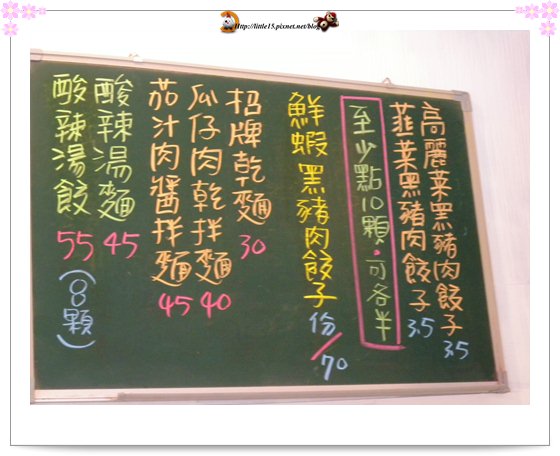 http://little15.pixnet.net/blog
高麗菜黑豬肉餃子 3.5
韮菜黑豬肉餃子 3.5
至少點10顆。可各半
鮮蝦黑豬肉餃子 份/70
招牌乾麵 30
瓜仔肉乾拌麵 40
茄汁肉醬拌麵 45
酸辣湯麵 45
酸辣湯餃 55 (8顆)